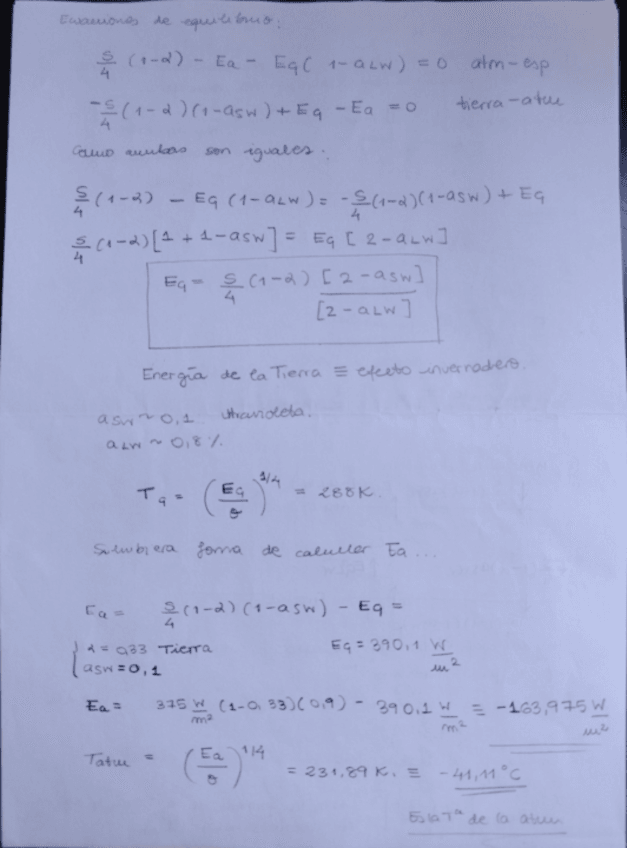 Ecuaciones de equilibrio.
S/4 (1-α) - Ea - Eg( 1-aLW) = 0 atm-esp
-S/4 (1-α)(1-asw) + Eg - Ea = 0 tierra-atm
Como ambas son iguales.
S/4 (1-α) - Eg (1-aLW) = -S/4 (1-α)(1-asw) + Eg
S/4 (1-α)[1 + 1-asw] = Eg [2-aLW]
Eg = S/4 (1-α) [2-asw] / [2-aLW]
Energía de la Tierra ≡ efecto invernadero.
asw ~ 0,1 ultravioleta.
aLW ~ 0,8 %.
Tg = (Eg/σ)^1/4 = 288K.
Si hubiera forma de calcular Ea ...
Ea = S/4 (1-α)(1-asw) - Eg =
α = 0,33 Tierra Eg = 390,1 W/m²
asw = 0,1
Ea = 375 W/m² (1-0,33)(0,9) - 390,1 W/m² = -163,975 W/m²
Tatm = (Ea/σ)^1/4 = 231,89 K. ≡ -41,11°C
Es la Tª de la atm